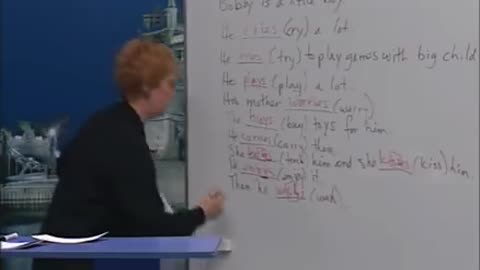 Bobby is a little boy
He cries (cry) a lot
He tries (try) to play games with big child
He plays (play) a lot.
His mother worries (worry)
She buys (buy) toys for him
He carries (carry) them
She (him and she kisses (kiss) him.
He enjoys (enjoy) it
Then he (wash)